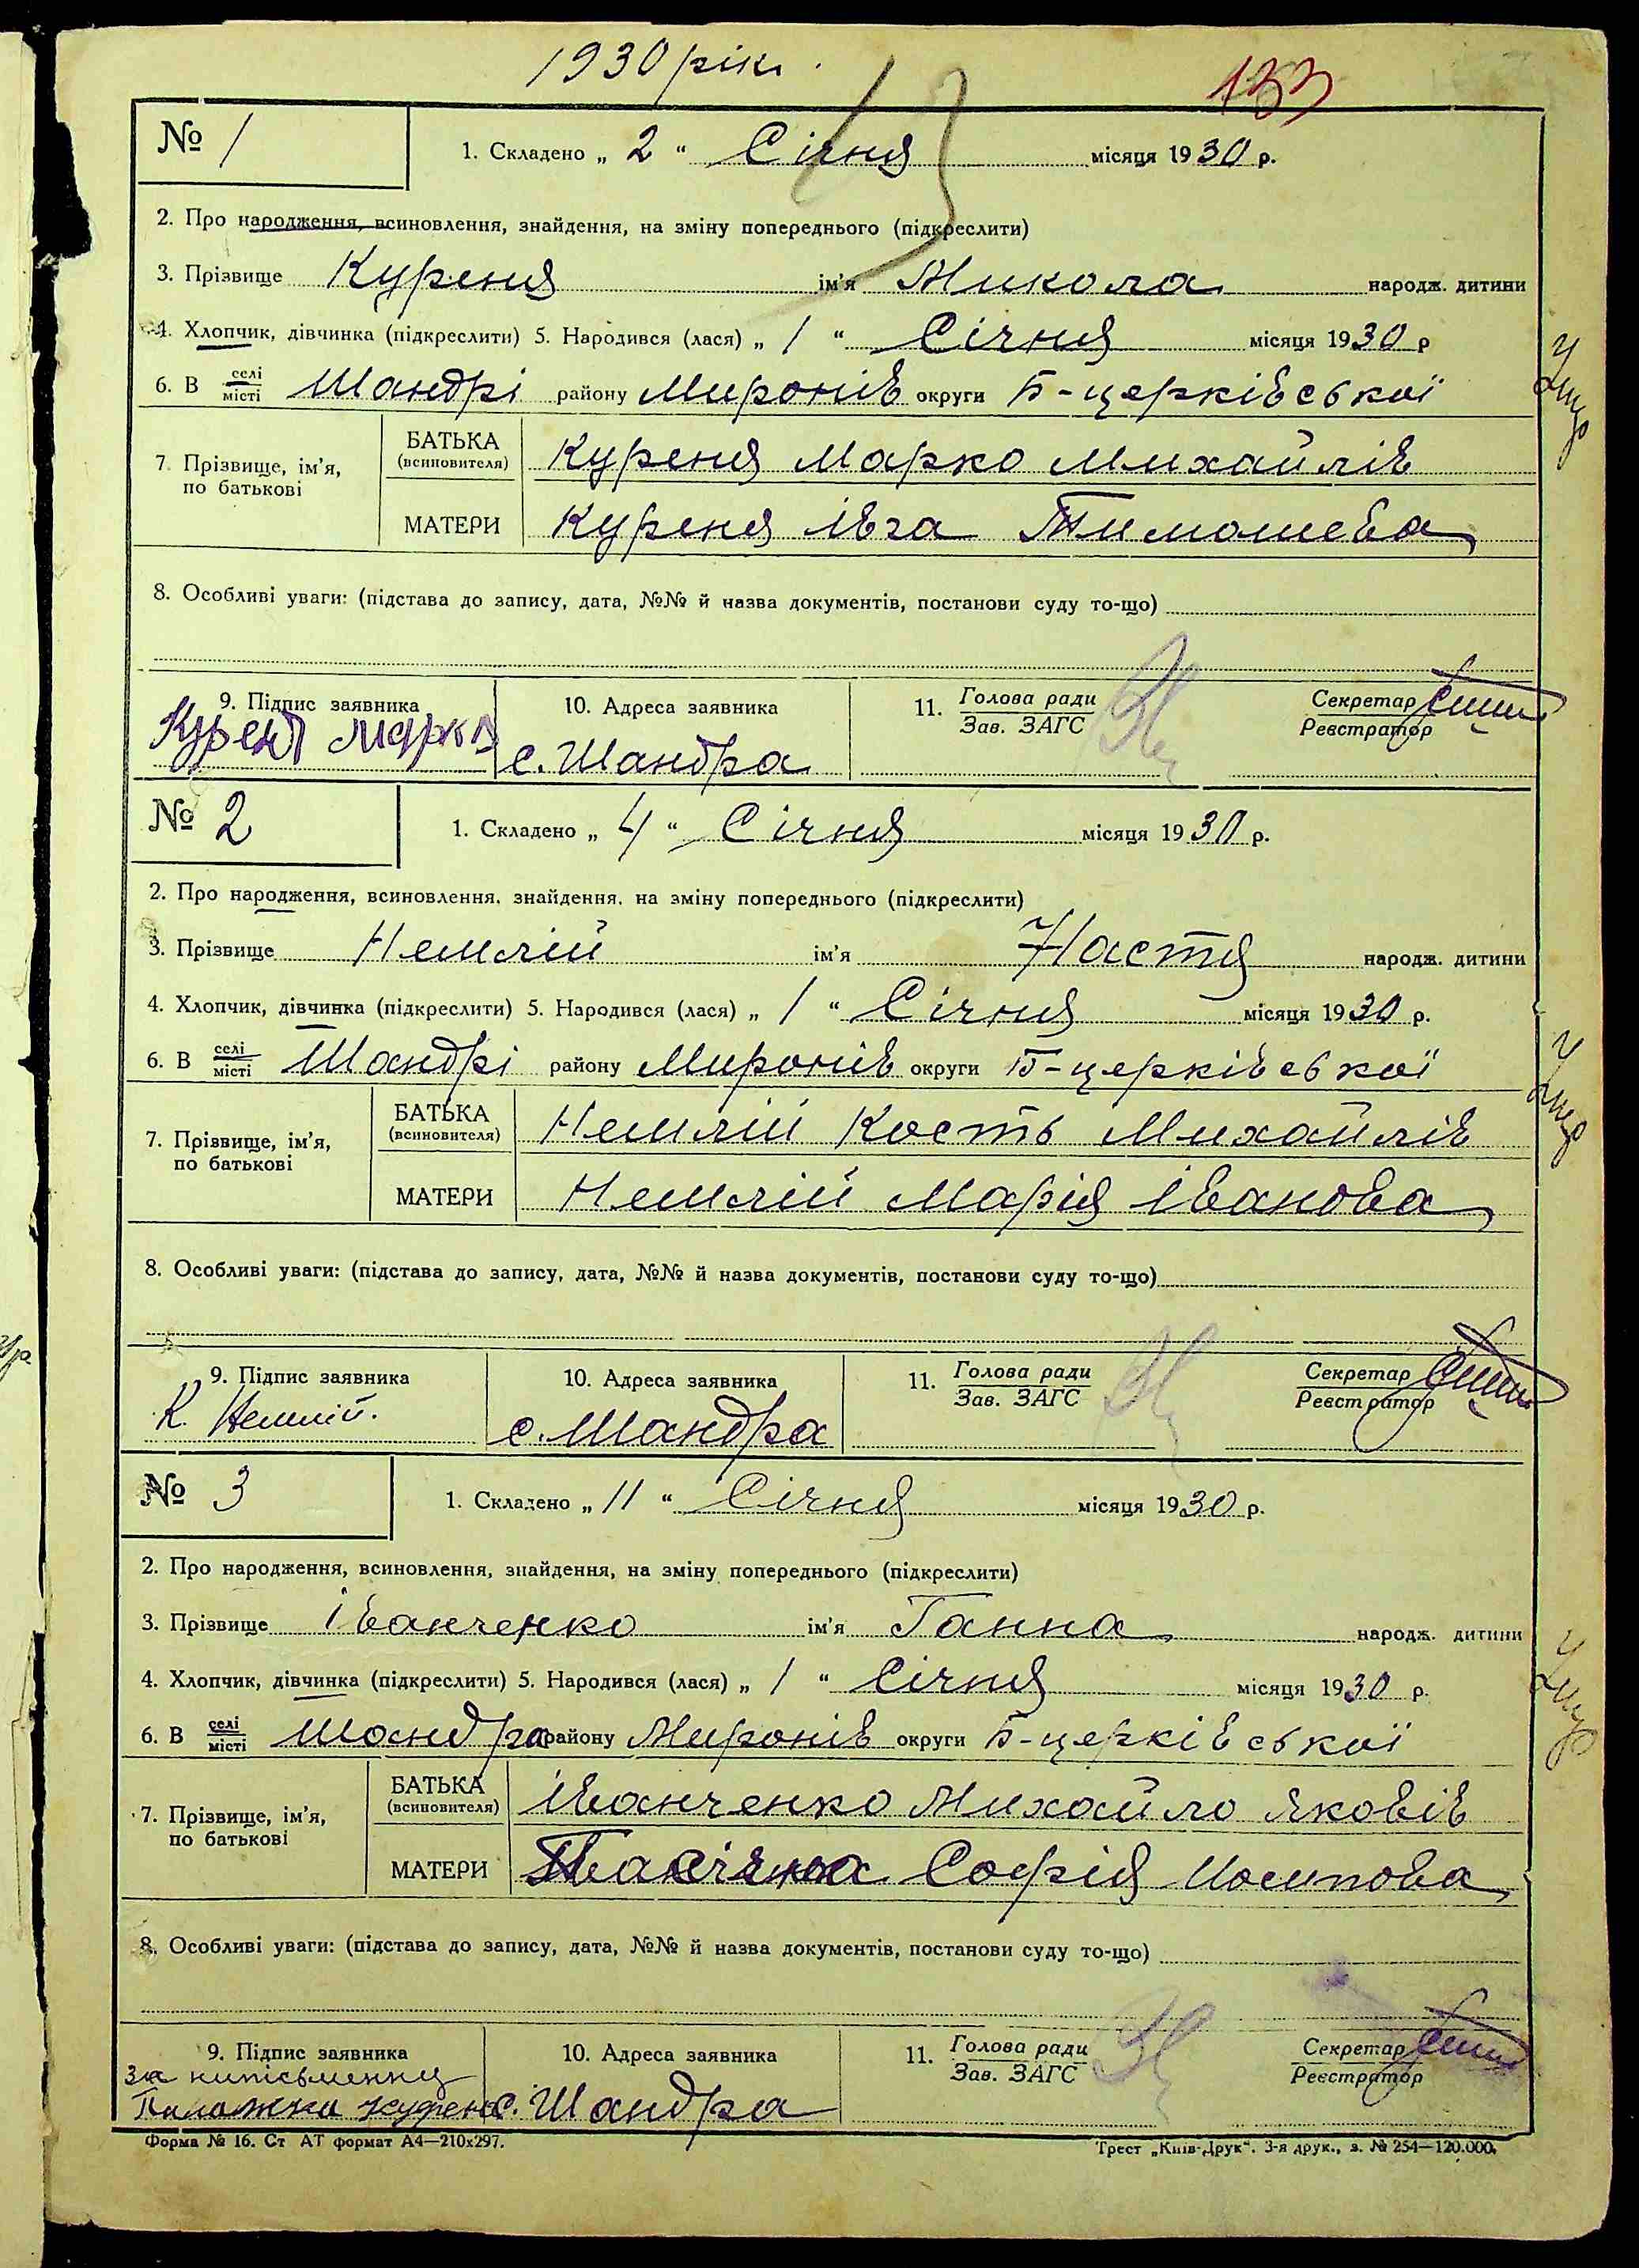 1930 рік.
133
№ 1
1. Складено „ 2 “ Січня місяця 1930 р.
2. Про народження, всиновлення, знайдення, на зміну попереднього (підкреслити)
3. Прізвище Куреня ім'я Микола народж. дитини
4. Хлопчик, дівчинка (підкреслити) 5. Народився (лася) „ 1 “ Січня місяця 1930 р
6. В селі/місті Шандрі району Миронів округи Б-церківської
7. Прізвище, ім'я, по батькові
БАТЬКА (всиновителя) Куреня Марко Михайлів
МАТЕРИ Куреня Івга Тимошева
8. Особливі уваги: (підстава до запису, дата, №№ й назва документів, постанови суду то-що)
9. Підпис заявника 10. Адреса заявника 11. Голова ради/Зав. ЗАГС Секретар/Реєстратор
Марко с. Шандра
№ 2
1. Складено „ 4 “ Січня місяця 1930 р.
2. Про народження, всиновлення, знайдення, на зміну попереднього (підкреслити)
3. Прізвище Немлій ім'я Настя народж. дитини
4. Хлопчик, дівчинка (підкреслити) 5. Народився (лася) „ 1 “ Січня місяця 1930 р.
6. В селі/місті Шандрі району Миронів округи Б-церківської
7. Прізвище, ім'я, по батькові
БАТЬКА (всиновителя) Немлій Кость Михайлів
МАТЕРИ Немлій Марія Іванова
8. Особливі уваги: (підстава до запису, дата, №№ й назва документів, постанови суду то-що)
9. Підпис заявника 10. Адреса заявника 11. Голова ради/Зав. ЗАГС Секретар/Реєстратор
К. Немлій. с. Шандра
№ 3
1. Складено „ 11 “ Січня місяця 1930 р.
2. Про народження, всиновлення, знайдення, на зміну попереднього (підкреслити)
3. Прізвище Іванченко ім'я Ганна народж. дитини
4. Хлопчик, дівчинка (підкреслити) 5. Народився (лася) „ 1 “ Січня місяця 1930 р.
6. В селі/місті Шандра району Миронів округи Б-церківської
7. Прізвище, ім'я, по батькові
БАТЬКА (всиновителя) Іванченко Михайло Яковів
МАТЕРИ Софія Йосипова
8. Особливі уваги: (підстава до запису, дата, №№ й назва документів, постанови суду то-що)
9. Підпис заявника 10. Адреса заявника 11. Голова ради/Зав. ЗАГС Секретар/Реєстратор
за
с. Шандра
Форма № 16. Ст АТ формат А4—210х297.
Трест „Київ-Друк“. 3-я друк., з. № 254—120.000.